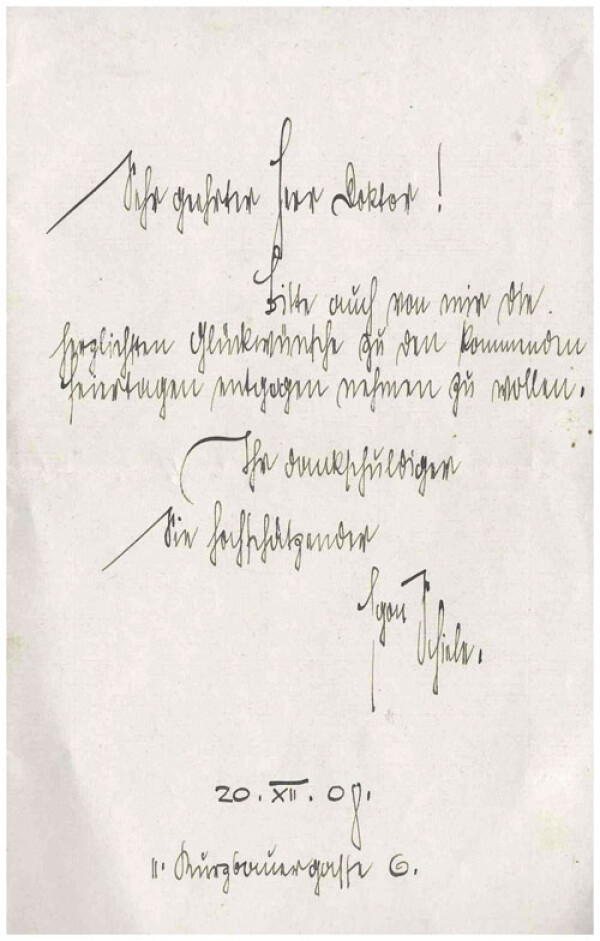 Sehr geehrter Herr Doktor!
Bitte auch von mir die
herzlichsten Glückwünsche zu den kommenden
Feiertagen entgegen nehmen zu wollen.
Ihr dankschuldiger
Sie hochschätzender
Egon Schiele.
20. XII. 09.
II. Kurzbauergasse 6.